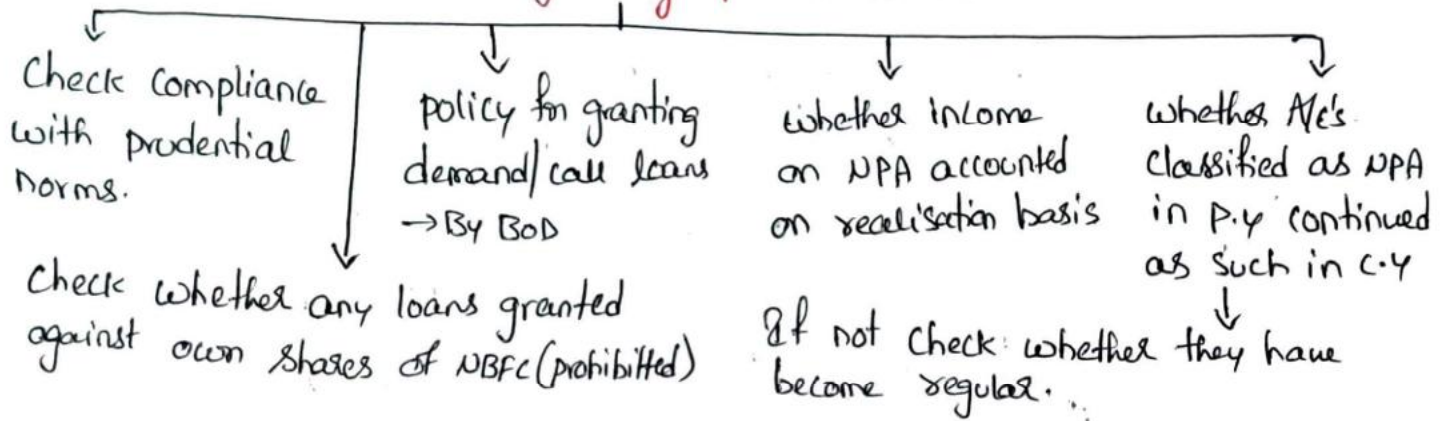 Check Compliance
with prudential
norms.
policy for granting
demand/call loans
→ By BoD
whether income
on NPA accounted
on recalisation basis
whether A/c's
Classified as NPA
in p.y continued
as such in c.y
Check whether any loans granted
against own shares of NBFC (prohibitted)
If not check whether they have
become regular.